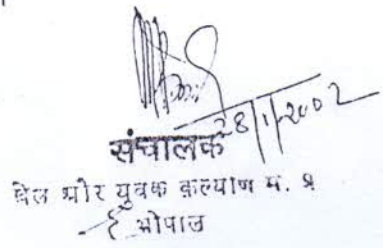 28/1/2002
संचालक
खेल और युवक कल्याण म. प्र
भोपाल